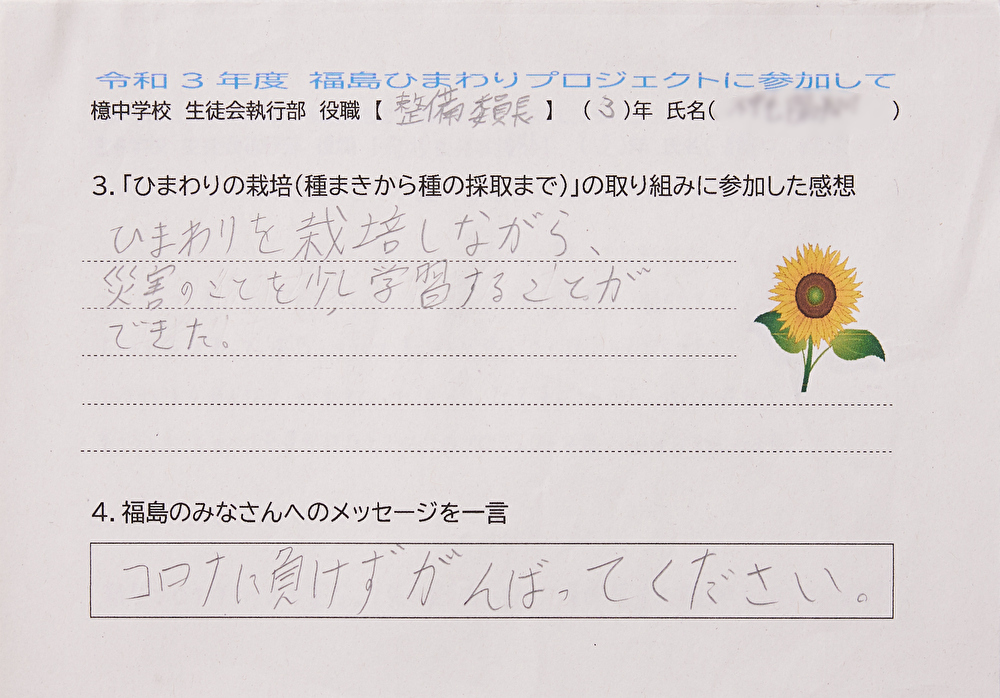 令和３年度 福島ひまわりプロジェクトに参加して
檍中学校 生徒会執行部 役職【 整備委員長 】 （ 3 ）年 氏名（ ）
３．「ひまわりの栽培（種まきから種の採取まで）」の取り組みに参加した感想
ひまわりを栽培しながら、
災害のことを少し学習することが
できた。
４．福島のみなさんへのメッセージを一言
コロナに負けずがんばってください。